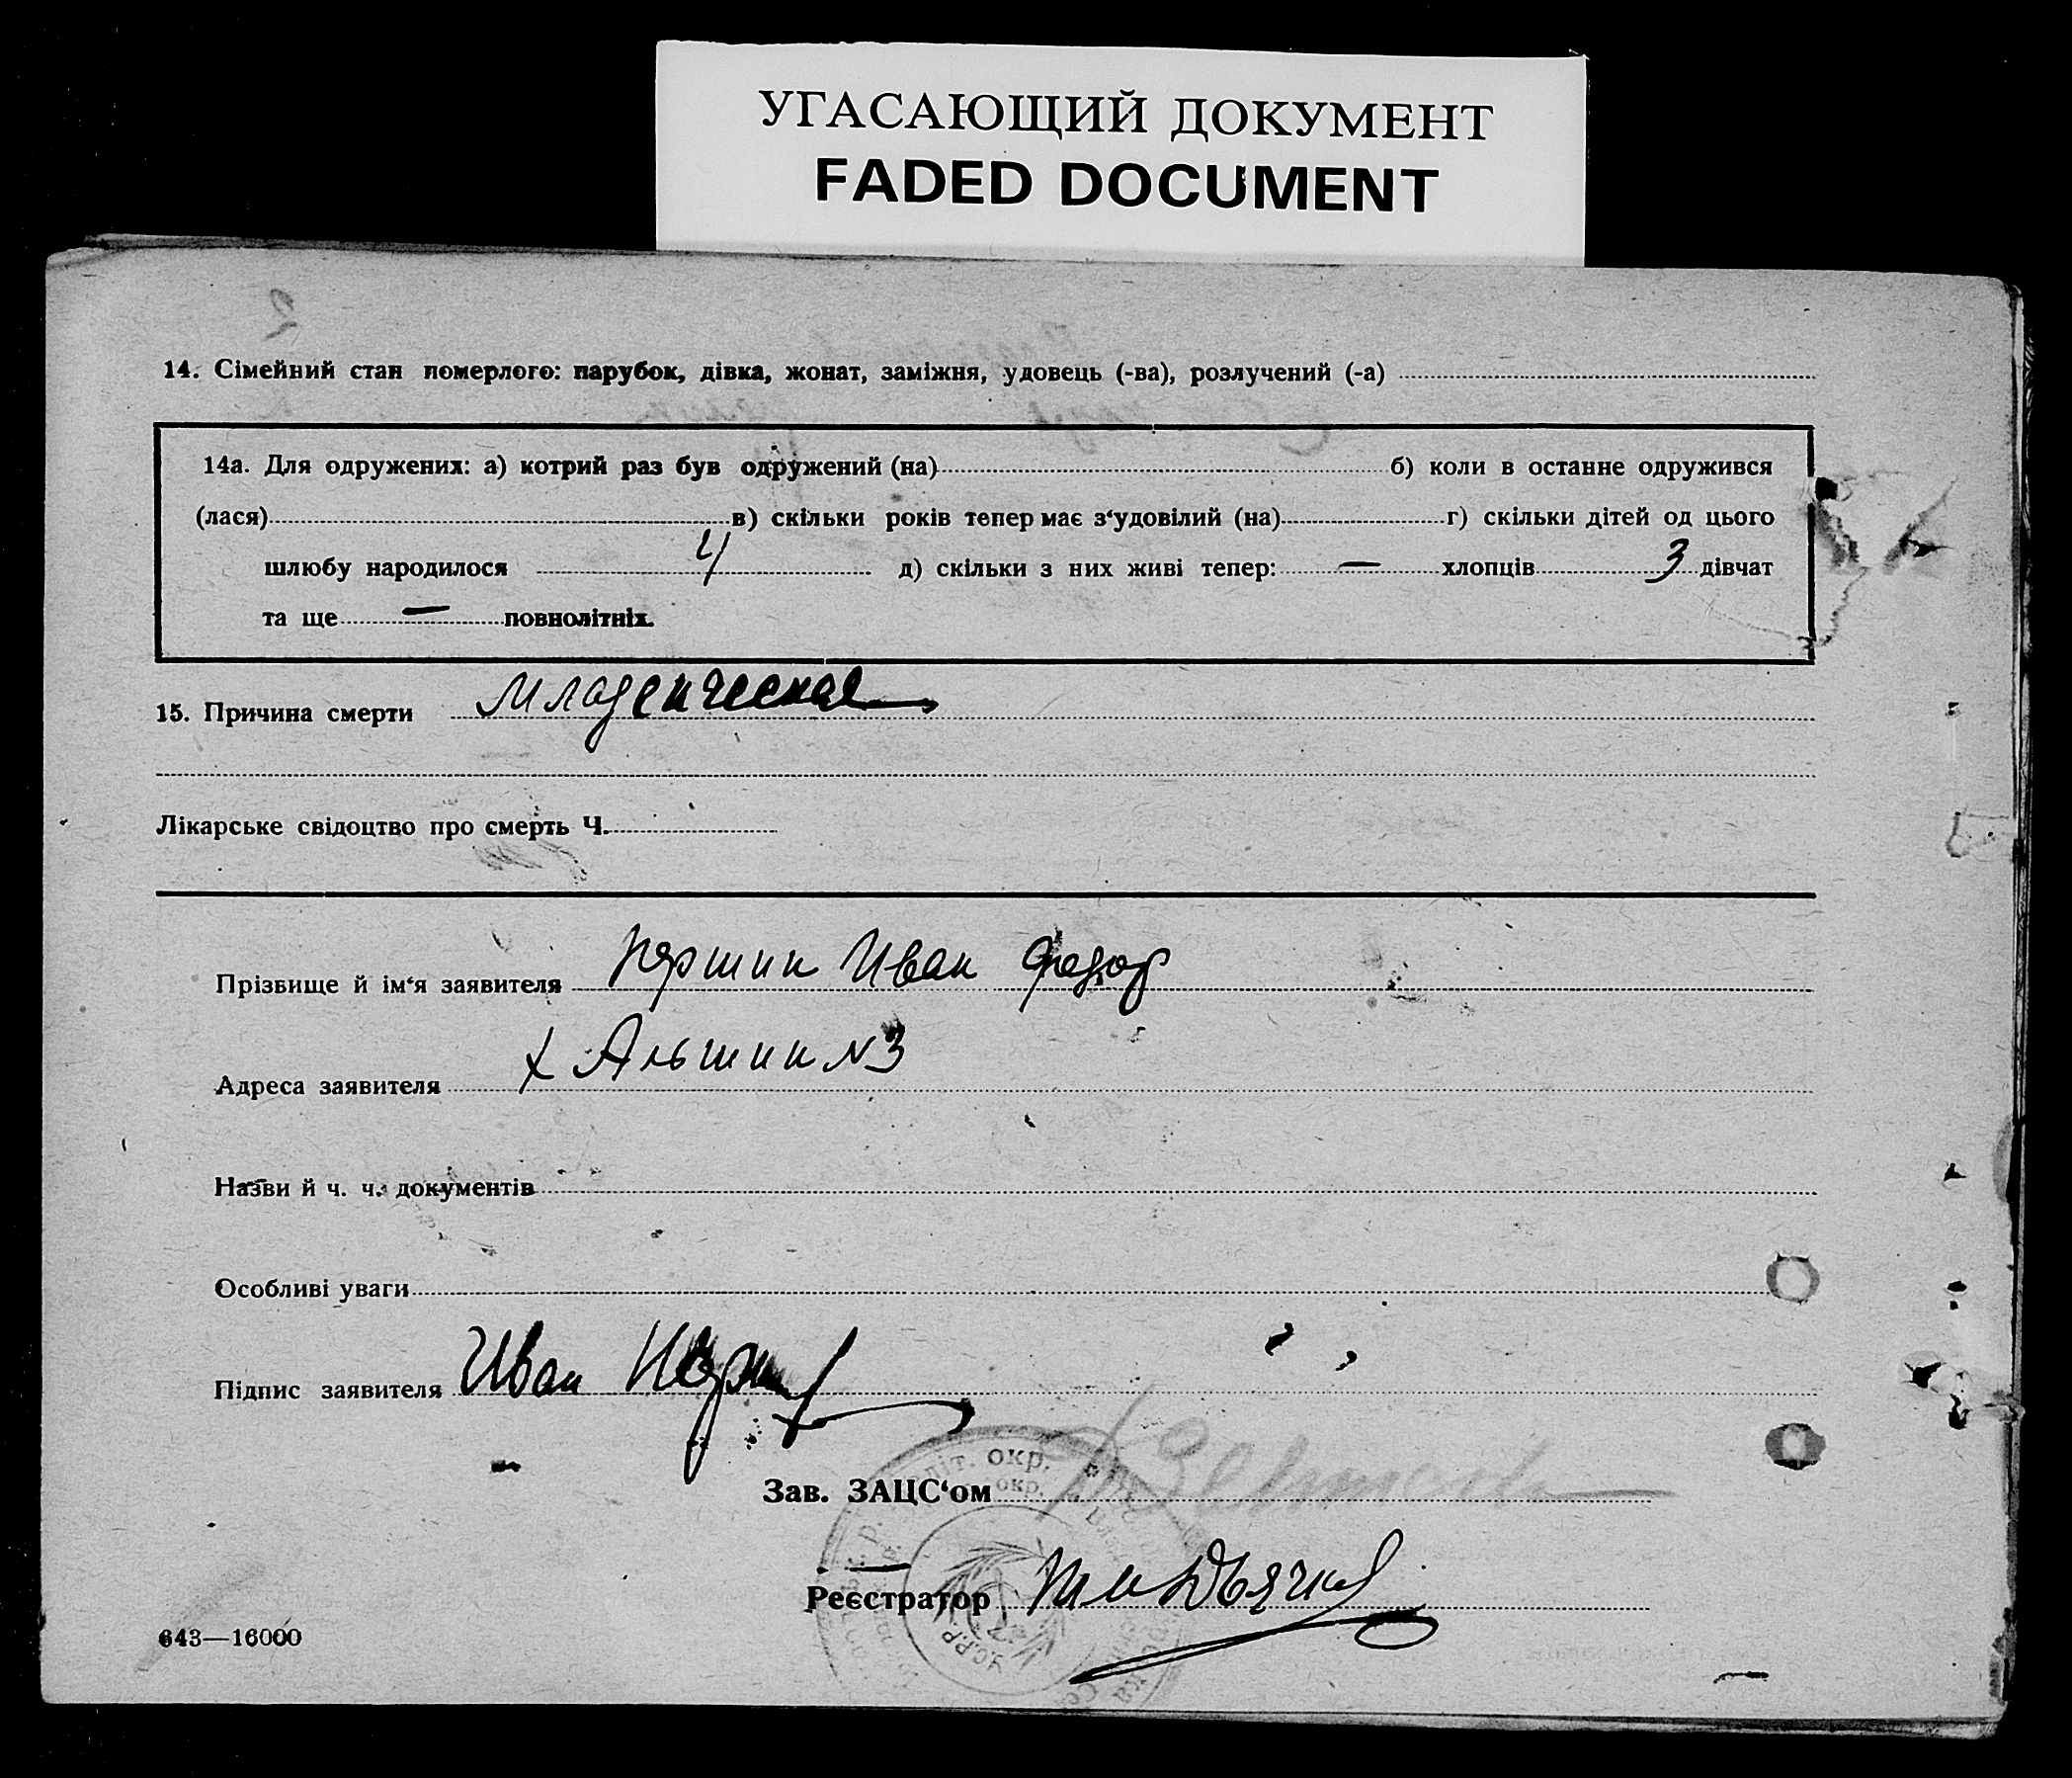 УГАСАЮЩИЙ ДОКУМЕНТ
FADED DOCUMENT
14. Сімейний стан померлого: парубок, дівка, жонат, заміжня, удовець (-ва), розлучений (-а)
14а. Для одружених: а) котрий раз був одружений (на) б) коли в останне одружився
(лася) в) скільки років тепер має з‘удовілий (на) г) скільки дітей од цього
шлюбу народилося 4 д) скільки з них живі тепер: — хлопців 3 дівчат
та ще — повнолітніх.
15. Причина смерти Младенческая
Лікарське свідоцтво про смерть Ч.
Прізвище й ім‘я заявителя Иван Федор
Адреса заявителя х Альшин №3
Назви й ч. ч. документів
Особливі уваги
Підпис заявителя Иван
окр.
окр.
Зав. ЗАЦС‘ом
Реєстратор
У.С.Р.Р.
643—16000